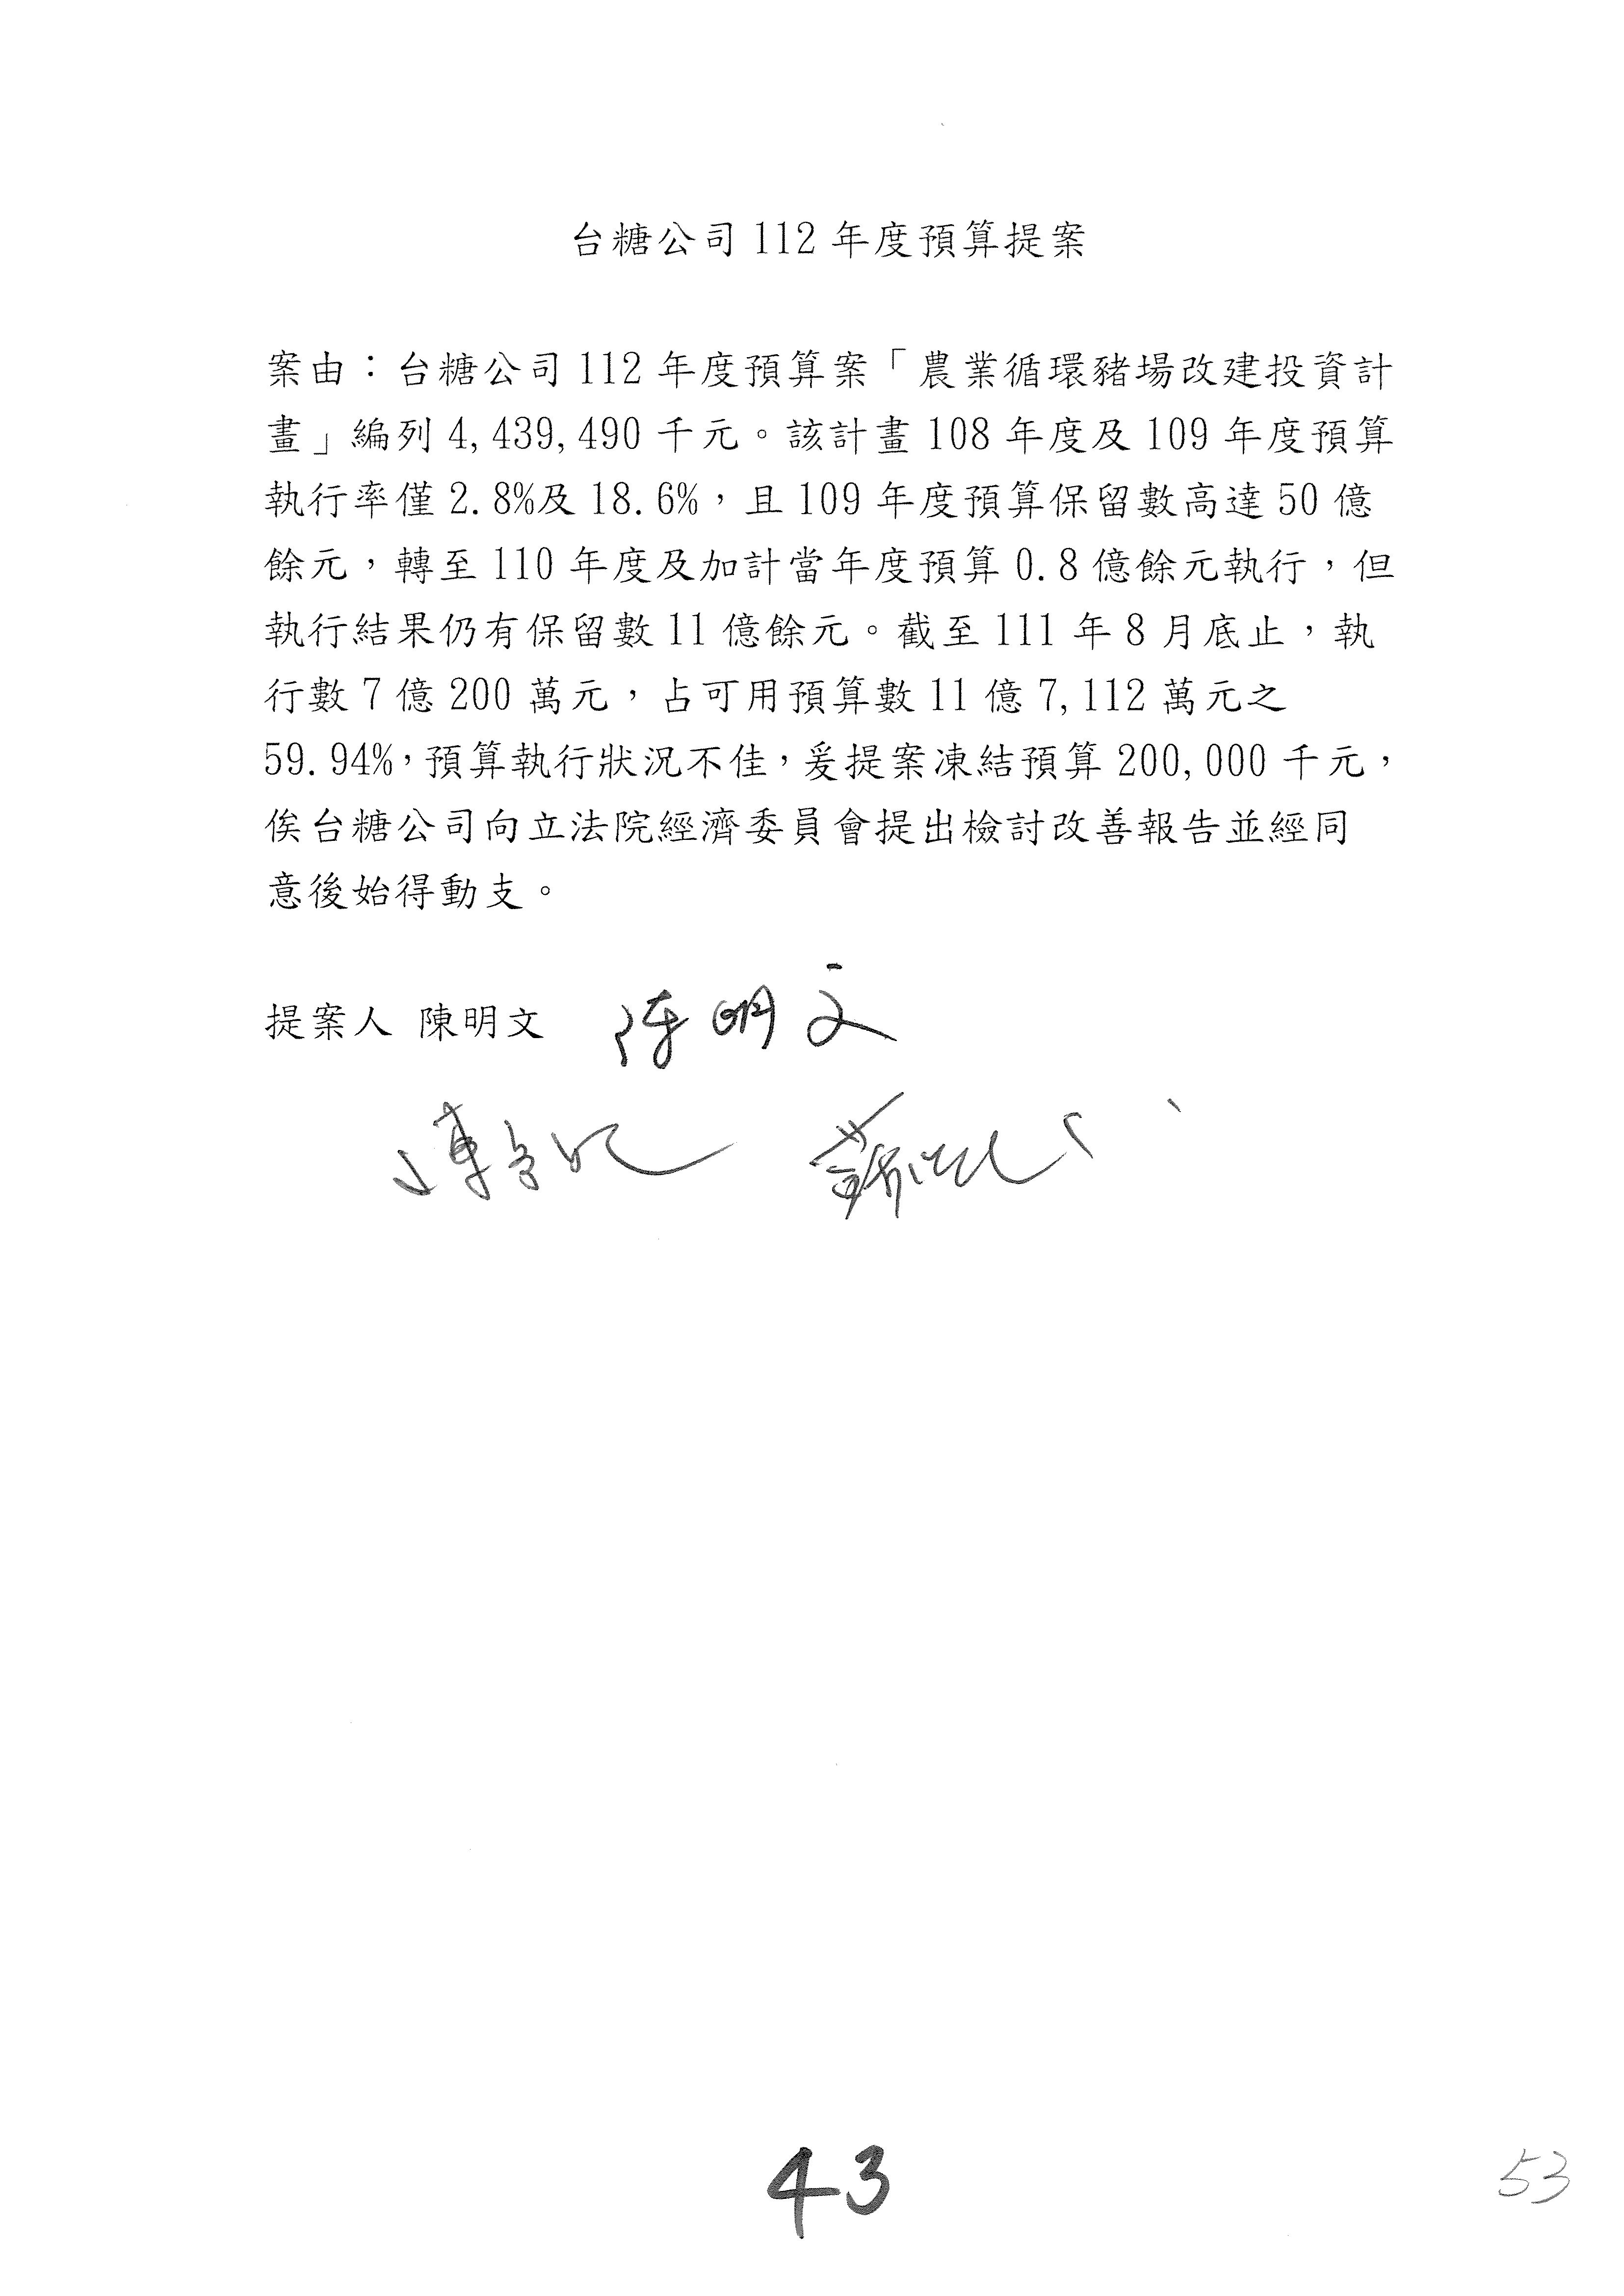 台糖公司 112 年度預算提案
案由：台糖公司 112 年度預算案「農業循環豬場改建投資計
畫」編列 4,439,490 千元。該計畫 108 年度及 109 年度預算
執行率僅 2.8%及 18.6%，且 109 年度預算保留數高達 50 億
餘元，轉至 110 年度及加計當年度預算 0.8 億餘元執行，但
執行結果仍有保留數 11 億餘元。截至 111 年 8 月底止，執
行數 7 億 200 萬元，占可用預算數 11 億 7,112 萬元之
59.94%，預算執行狀況不佳，爰提案凍結預算 200,000 千元，
俟台糖公司向立法院經濟委員會提出檢討改善報告並經同
意後始得動支。
提案人 陳明文 陳明文
43
53